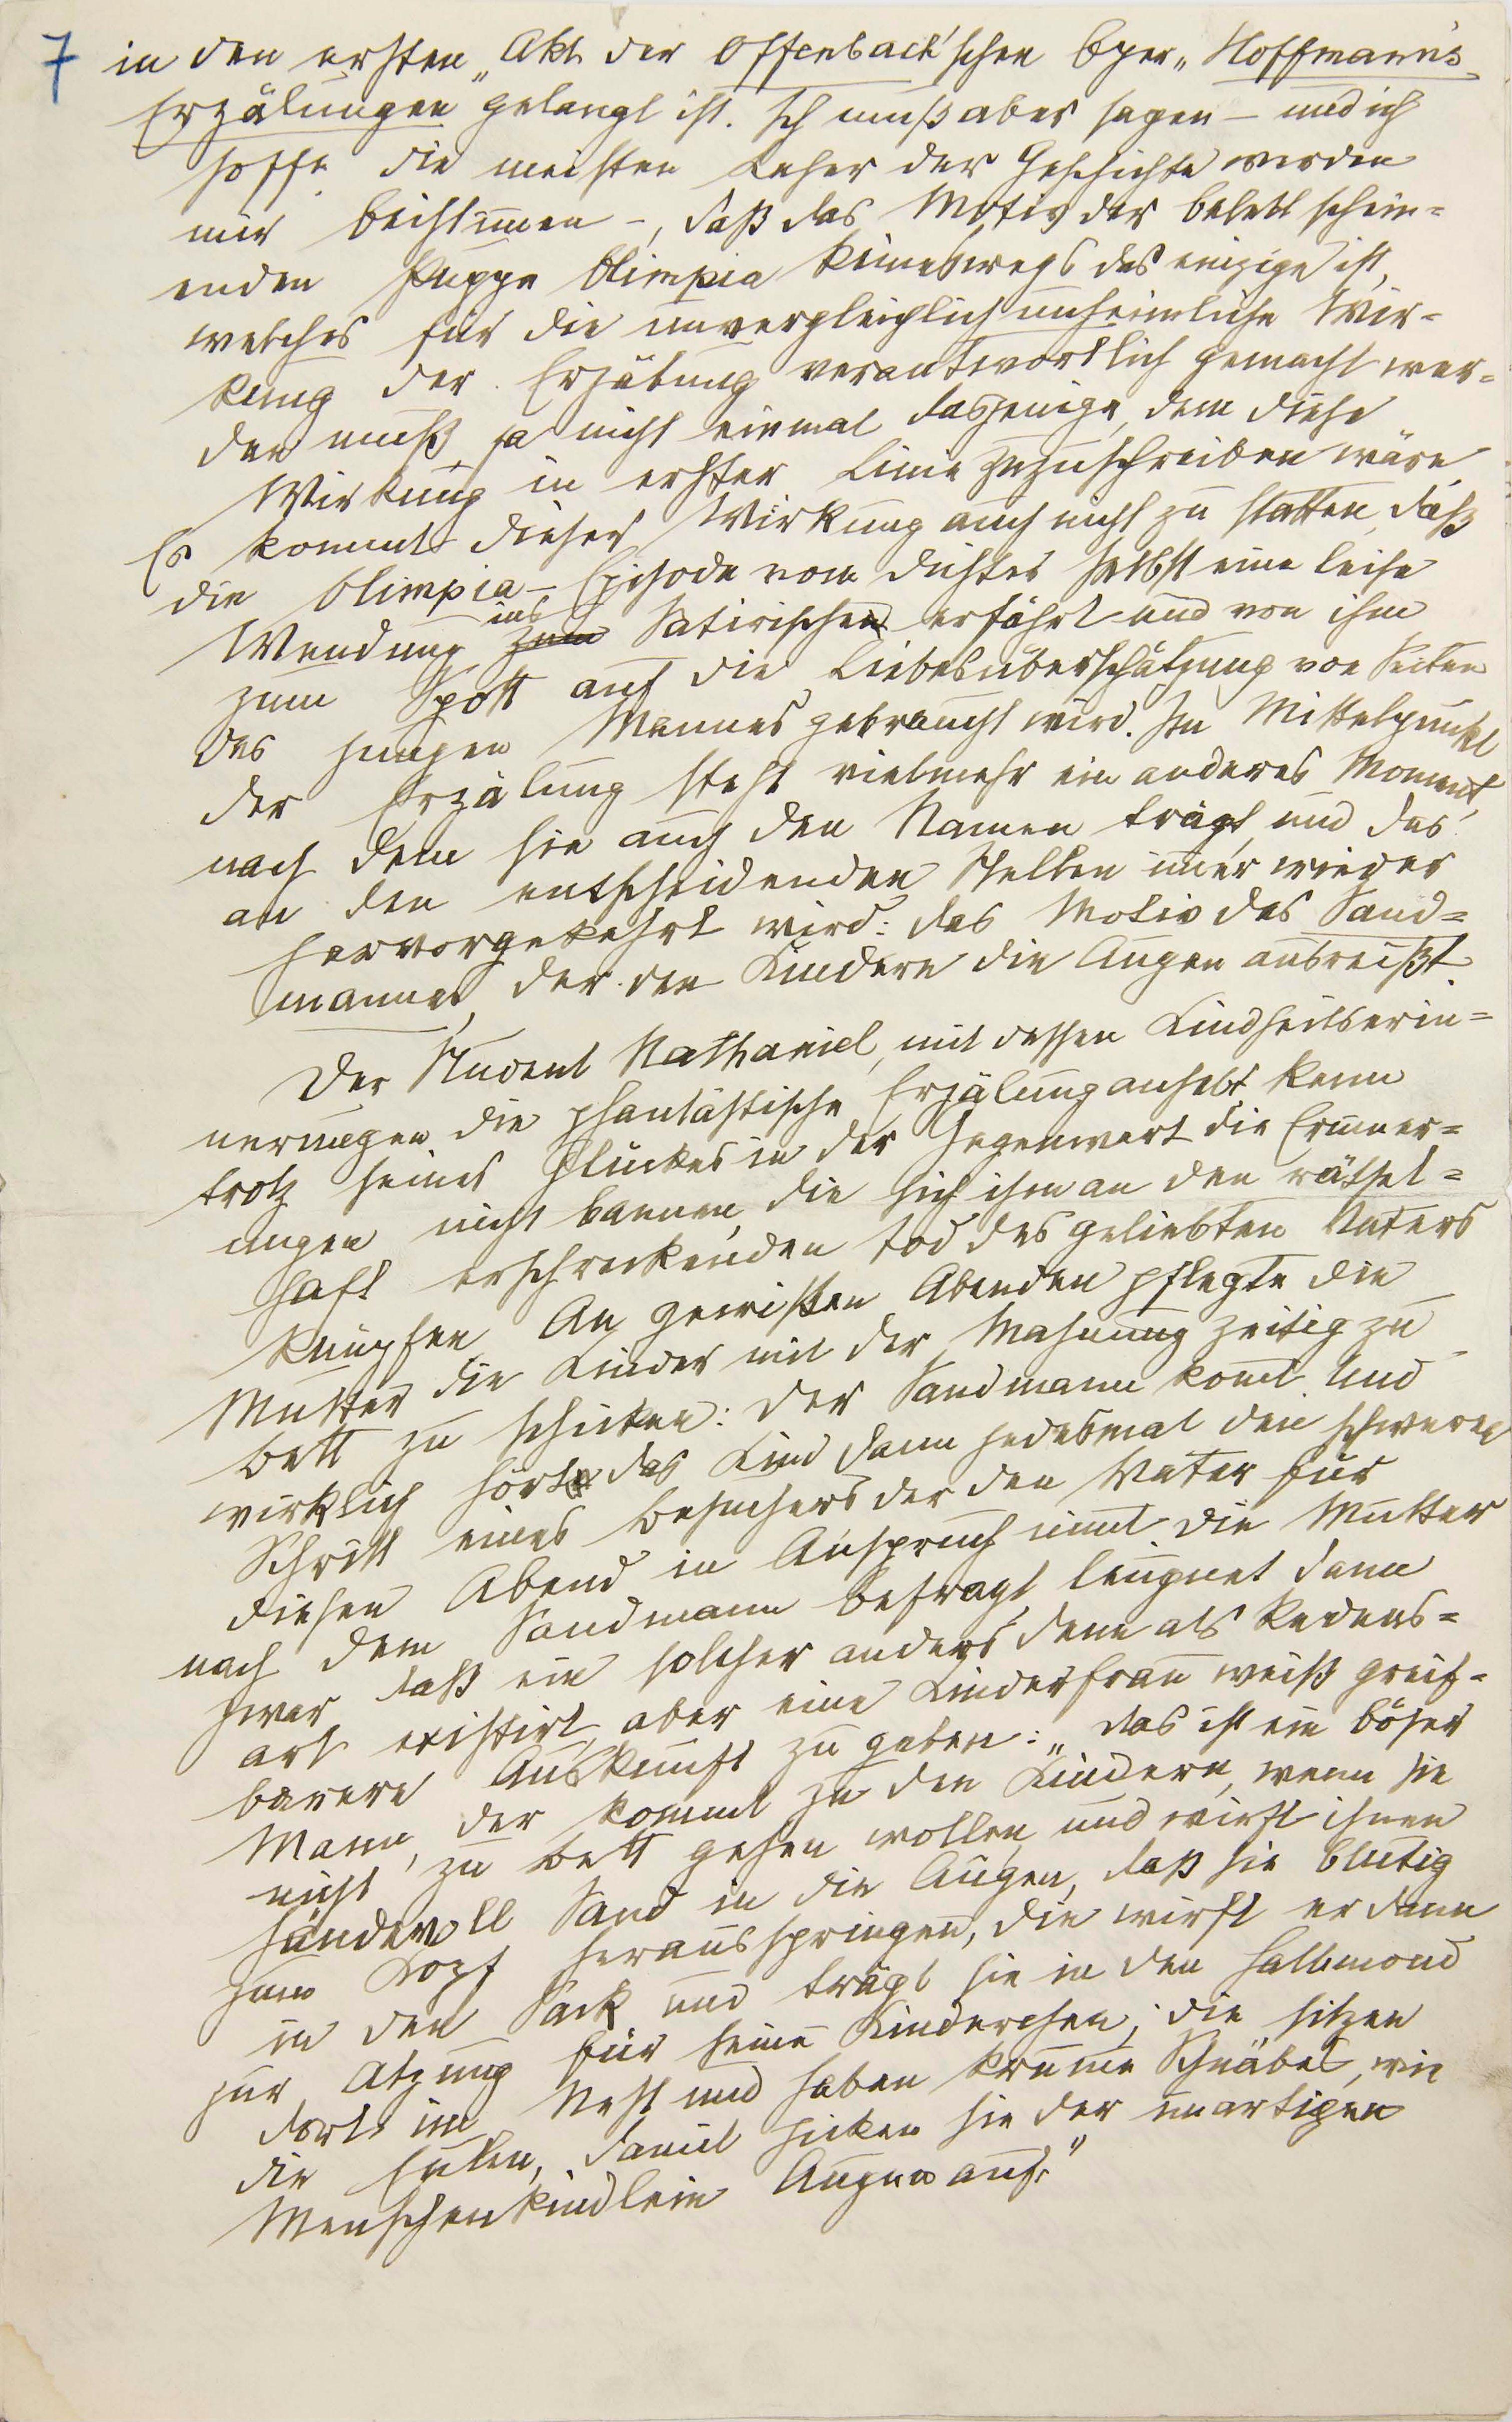 7 in den ersten „Akt der Offenbach'schen Oper „Hoffmann's
Erzälungen gelangt ist. Ich muß aber sagen – und ich
hoffe die meisten Leser der Geschichte werden
mir beistimmen –, daß das Motiv der belebt schein=
enden Puppe Olimpia keineswegs das einzige ist,
welches für die unvergleichlich unheimliche Wir=
kung der Erzälung verantwortlich gemacht wer=
den muß, ja nicht einmal dasjenige, dem diese
Wirkung in erster Linie zuzuschreiben wäre
Es kommt dieser Wirkung auch nicht zu statten, daß
die Olimpia-Episode vom Dichter selbst eine leise
Wendung zum ins Satirischen erfährt und von ihm
zum Spott auf die Liebesüberschätzung von Seiten
des jungen Mannes gebraucht wird. Im Mittelpunkt
der Erzälung steht vielmehr ein anderes Moment,
nach dem sie auch den Namen trägt, und das
an den entscheidenden Stellen immer wieder
hervorgekehrt wird: das Motiv des Sand=
mannes, der den Kindern die Augen ausreißt.
Der Student Nathaniel, mit dessen Kindheitserin=
nerungen die phantastische Erzälung anhebt, kann
trotz seines Glückes in der Gegenwart die Erinner=
ungen nicht bannen, die sich ihm an den räthsel=
haft erschreckenden Tod des geliebten Vaters
knüpfen. An gewissen Abenden pflegte die
Mutter die Kinder mit der Mahnung zeitig zu
Bett zu schicken: Der Sandmann kommt. Und
wirklich hört das Kind dann jedesmal den schweren
Schritt eines Besuchers der den Vater für
diesen Abend in Anspruch nimmt. Die Mutter
nach dem Sandmann befragt, leugnet dann
zwar daß ein solcher anders denn als Redens=
art existirt, aber eine Kinderfrau weiß greif=
barere Auskunft zu geben: „Das ist ein böser
Mann, der kommt zu den Kindern, wenn sie
nicht zu Bett gehen wollen, und wirft ihnen
Händevoll Sand in die Augen, daß sie blutig
zum Kopf herausspringen, die wirft er dann
in den Sack und trägt sie in den Halbmond
zur Atzung für seine Kinderchen; die sitzen
dort im Nest und haben krumme Schnäbel, wie
die Eulen, damit picken sie der unartigen
Menschenkindlein Augen auf."